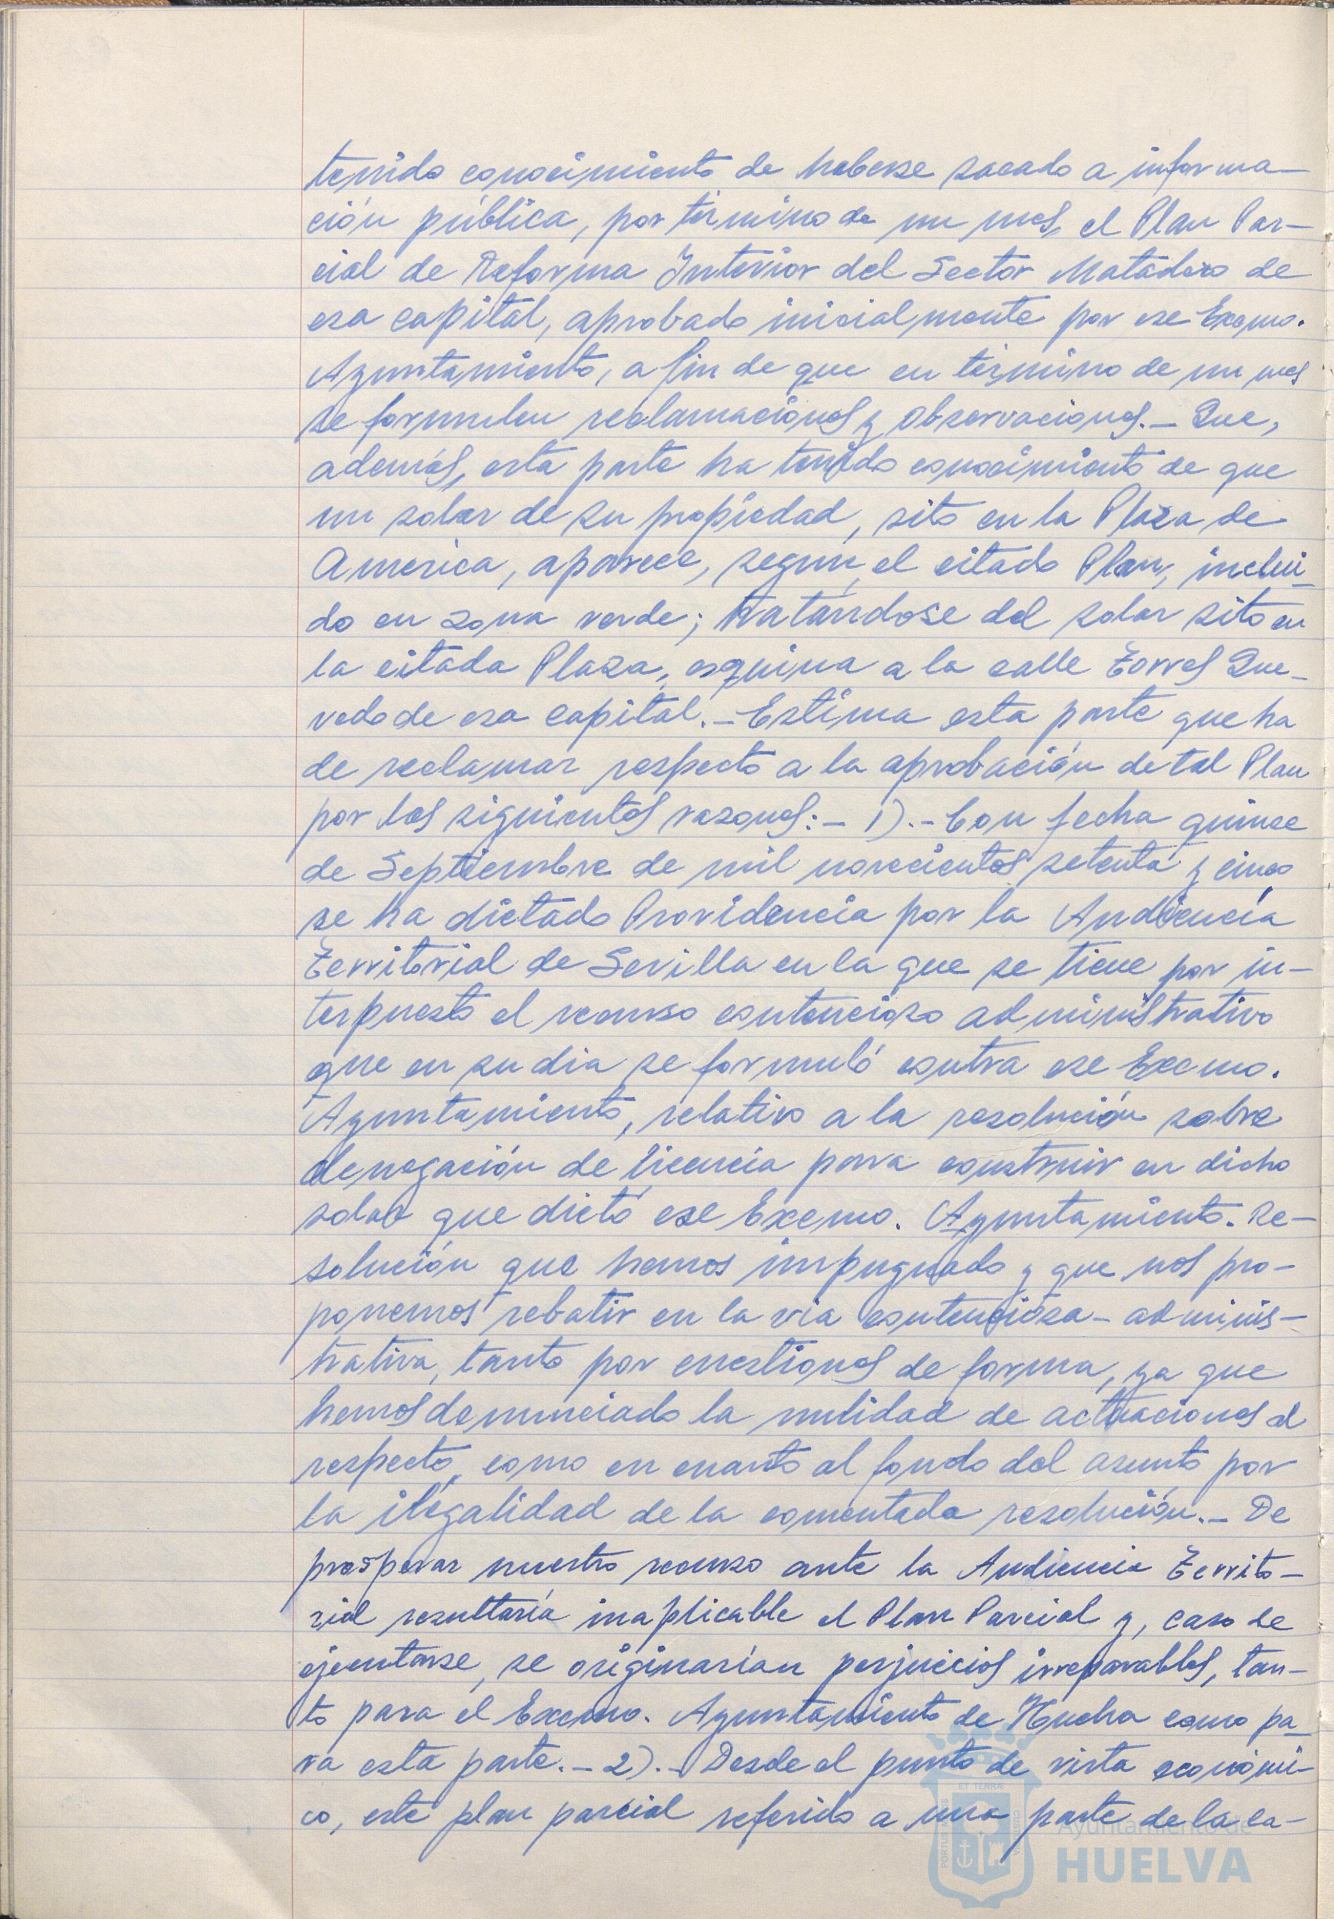 tenido conocimiento de haberse sacado a informa-
ción pública, por término de un mes, el Plan Par-
cial de Reforma Interior del Sector Matadero de
esa capital, aprobado inicialmente por ese Excmo.
Ayuntamiento, a fin de que en término de un mes
se formulen reclamaciones y observaciones.- Que,
además, esta parte ha tenido conocimiento de que
un solar de su propiedad, sito en la Plaza de
America, aparece, segun, el citado Plan, inclui-
do en zona verde; tratándose del solar sito en
la citada Plaza, esquina a la calle Torres Que-
vedo de esa capital.- Estima esta parte que ha
de reclamar respecto a la aprobación de tal Plan
por las siguientes razones:- 1).- Con fecha quince
de Septiembre de mil novecientos setenta y cinco
se ha dictado Providencia por la Audiencia
Territorial de Sevilla en la que se tiene por in-
terpuesto el recurso contencioso administrativo
que en su dia se formuló contra ese Excmo.
Ayuntamiento, relativo a la resolución sobre
denegación de licencia para construir en dicho
solar que dictó ese Excmo. Ayuntamiento. Re-
solución que hemos impugnado y que nos pro-
ponemos rebatir en la via contenciosa-adminis-
trativa, tanto por cuestiones de forma, ya que
hemos denunciado la nulidad de actuaciones al
respecto, como en cuanto al fondo del asunto por
la ilegalidad de la comentada resolución.- De
prosperar nuestro recurso ante la Audiencia Territo-
rial resultaría inaplicable el Plan Parcial y, caso de
ejecutarse, se originarían perjuicios irreparables, tan-
to para el Excmo. Ayuntamiento de Huelva como pa-
ra esta parte.- 2).- Desde el punto de vista económi-
co, este plan parcial referido a una parte de la ca-
Ayuntamiento de
HUELVA